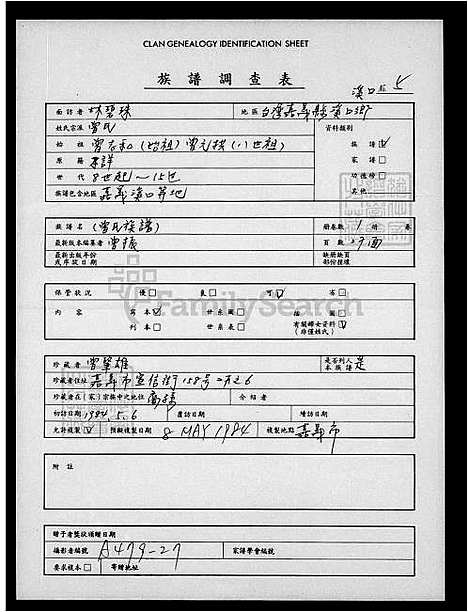 CLAN GENEALOGY IDENTIFICATION SHEET
族譜調查表
溪口 5
面訪者 林碧珠 地區 台灣嘉義縣溪口鄉
姓氏宗派 曾氏 資料類別
始祖 曾志和(始祖)曾元棋(八世祖) 族譜
原籍 不詳 家譜
世代 8世起~15世 功德榜
族譜包含地區 嘉義溪口等地 其他
族譜名 (曾氏族譜) 冊卷數 1 冊 卷
最新版本編纂者 曾振 頁數 9面
最新出版年份 缺冊缺頁
或序跋日期 部份撞擾
保管狀況 優 良 可 布
內容 寫本 世系圖 插圖
刊本 世系表 有關婦女資料
(非僅姓氏)
FamilySearch
珍藏者 曾肇雄 是否列入本族譜 是
珍藏者住址 嘉義市宣信街158号
珍藏者在(家)宗族中之地位 裔孫 介紹者
初訪日期 1984.5.6 覆訪日期 增訪日期
允許複製 預擬複製日期 8 MAY 1984 複製地點 嘉義市
附註
贈予者獎狀頒贈日期
攝影者編號 A479-27 家譜學會編號
要求複本 寄贈地址